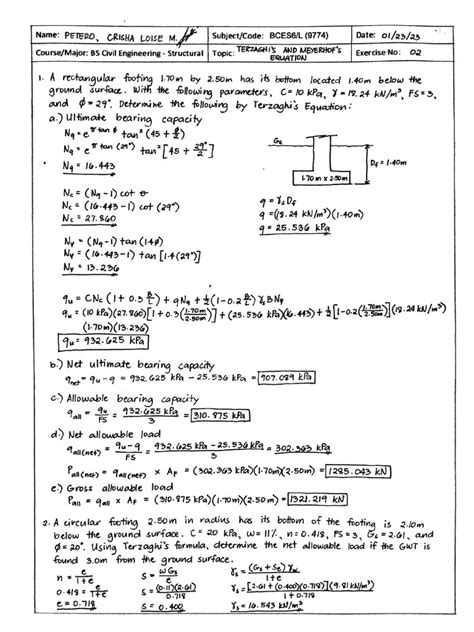 Name: PETERO, CRISHA LOISE M. Subject/Code: BCES6/L (9774) Date: 01/23/23
Course/Major: BS Civil Engineering - Structural Topic: TERZAGHI'S AND MEYERHOF'S EQUATION Exercise No: 02
1. A rectangular footing 1.70m by 2.50m has its bottom located 1.40m below the
ground surface. With the following parameters, C = 10 kPa, γ = 18.24 kN/m³, FS = 3,
and ϕ = 29°. Determine the following by Terzaghi's Equation:
a.) Ultimate bearing capacity
Nq = e^(π tan ϕ) tan² (45 + ϕ/2)
Nq = e^(π tan 29°) tan² [45 + 29°/2]
Nq = 16.443
GS
Df = 1.40m
1.70m x 2.50m
Nc = (Nq - 1) cot θ
Nc = (16.443 - 1) cot (29°)
Nc = 27.860
q = γs Df
q = (18.24 kN/m³)(1.40m)
q = 25.536 kPa
Nγ = (Nq - 1) tan (1.4ϕ)
Nγ = (16.443 - 1) tan [1.4 (29°)]
Nγ = 13.236
qu = CNc (1 + 0.3 B/L) + qNq + ½ (1 - 0.2 B/L) γs BNγ
qu = (10 kPa)(27.860)[1 + 0.3(1.70m/2.50m)] + (25.536 kPa)(16.443) + ½ [1 - 0.2(1.70m/2.50m)] (18.24 kN/m³)
(1.70m)(13.236)
qu = 932.625 kPa
b.) Net ultimate bearing capacity
qnet = qu - q = 932.625 kPa - 25.536 kPa = 907.089 kPa
c.) Allowable bearing capacity
qall = qu/FS = 932.625 kPa/3 = 310.875 kPa
d.) Net allowable load
qall(net) = qu - q/FS = 932.625 kPa - 25.536 kPa/3 = 302.363 kPa
Pall(net) = qall(net) x AF = (302.363 kPa)(1.70m)(2.50m) = 1285.043 kN
e.) Gross allowable load
Pall = qall x AF = (310.875 kPa)(1.70m)(2.50m) = 1321.219 kN
2. A circular footing 2.50m in radius has its bottom of the footing is 2.10m
below the ground surface. C = 20 kPa, ω = 11%, n = 0.418, FS = 3, Gs = 2.61, and
ϕ = 20°. Using Terzaghi's formula, determine the net allowable load if the GWT is
found 3.0m from the ground surface.
n = e/1+e S = ωGs/e γs = (Gs + Se) γw/1+e
0.418 = e/1+e S = (0.11)(2.61)/0.718 γs = [2.61 + (0.400)(0.718)](9.81 kN/m³)/1 + 0.718
e = 0.718 S = 0.400 γs = 16.543 kN/m³